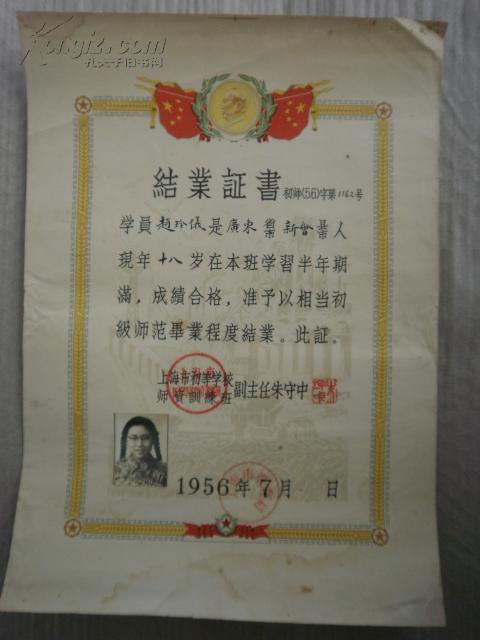 Kongfz.com
孔夫子旧书网
結業証書 初师(56)字第1162号
学員趙玲儀是廣東省新會县人
現年十八岁在本班学習半年期
滿，成績合格，准予以相当初
級师范畢業程度結業。此証。
上海市初等学校
师資訓練班
副主任朱守中
1956年7月 日